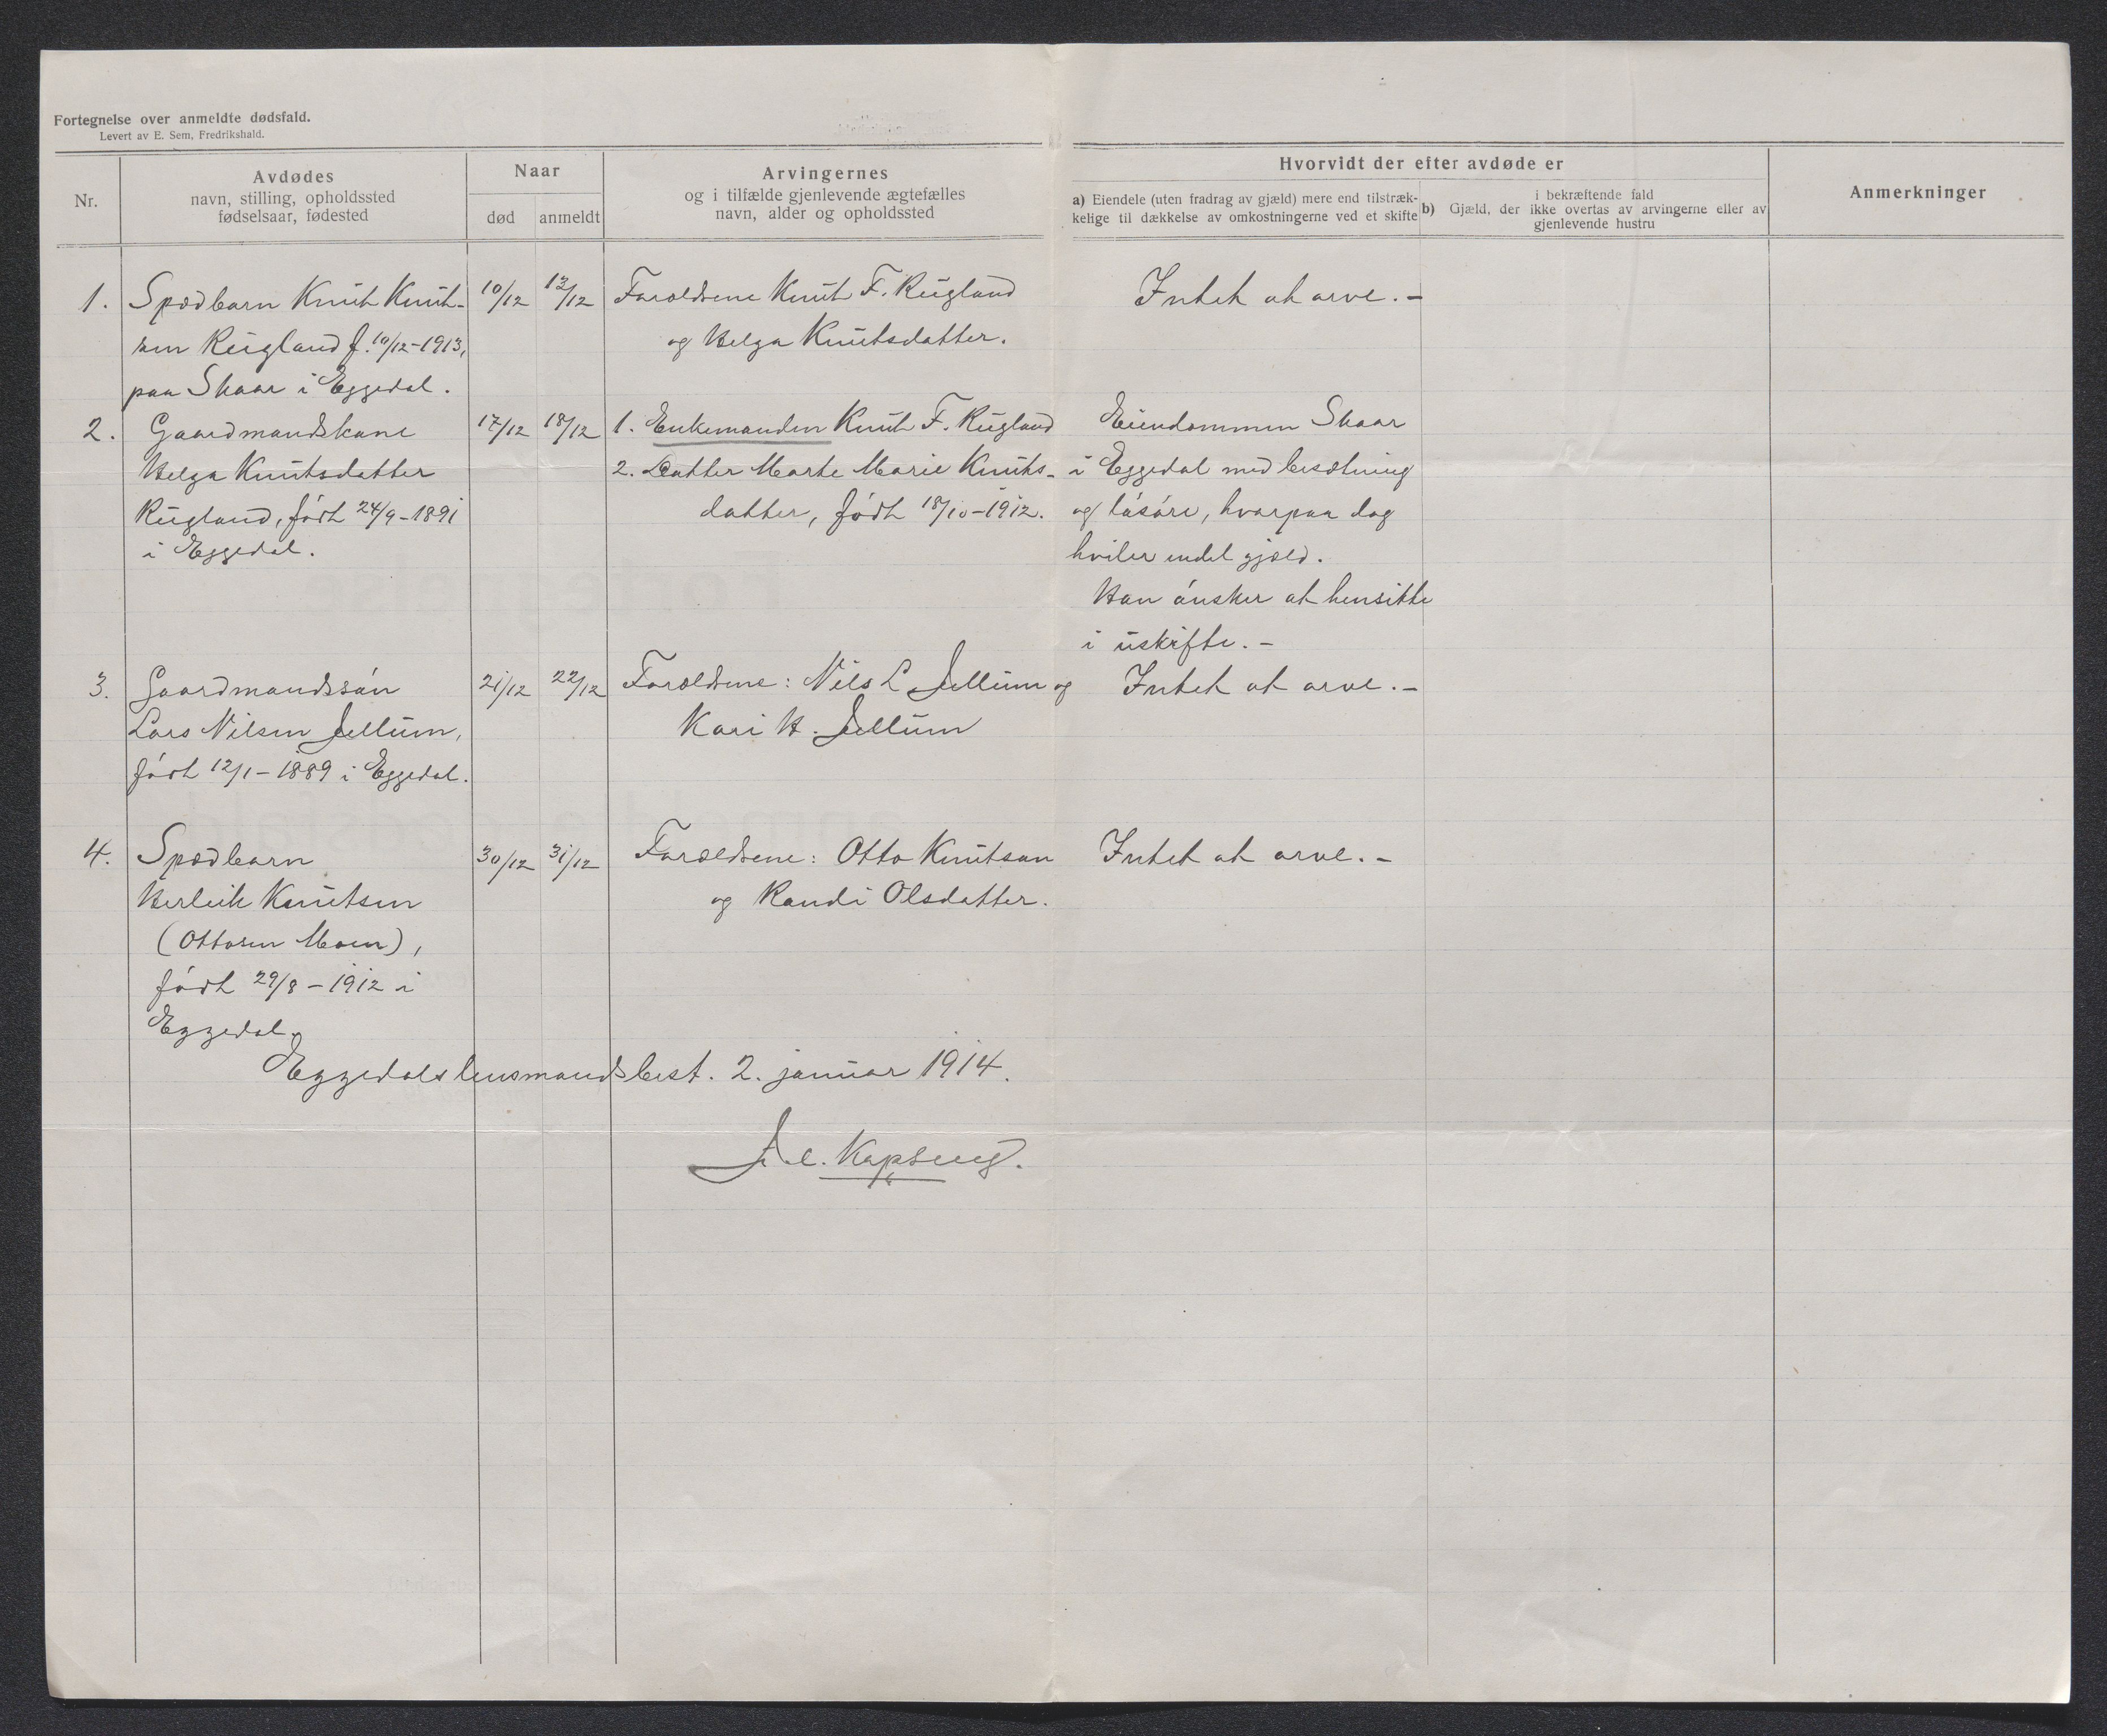 Fortegnelse over anmeldte dødsfald.
Levert av E. Sem, Fredrikshald.
Nr.
Avdødes
navn, stilling, opholdssted
fødselsaar, fødested
Naar
død
anmeldt
Arvingernes
og i tilfælde gjenlevende ægtefælles
navn, alder og opholdssted
Hvorvidt der efter avdøde er
a) Eiendele (uten fradrag av gjæld) mere end tilstræk-
kelige til dækkelse av omkostningerne ved et skifte
b) Gjæld, der ikke overtas av arvingerne eller av
i bekræftende fald
gjenlevende hustru
Anmerkninger
1.
Spædbarn Knut Knut-
sen Rugland f. 10/12-1913,
paa Skaar i Eggedal.
10/12
13/12
Forældrene Knut F. Rugland
og Helga Knutsdatter.
Intet at arve.-
2.
Gaardmandskone
Helga Knutsdatter
Rugland, født 24/9-1891
i Eggedal.
17/12
18/12
1. Enkemanden Knut F. Rugland
2. Datter Marte Marie Knuts-
datter, født 18/10-1912.
Eiendommen Skaar
i Eggedal med besætning
og løsøre, hvorpaa dog
hviler endel gjæld.
Han ønsker at hensitte
i uskifte.-
3.
Gaardmandssøn
Lars Nilsen Jellum,
født 12/1-1889 i Eggedal.
21/12
22/12
Forældrene: Nils L Jellum og
Kari H. Jellum
Intet at arve.-
4.
Spædbarn
Herleik Knutsen
(Ottosen Moen),
født 29/8-1912 i
Eggedal.
30/12
31/12
Forældrene: Otto Knutsen
og Randi Olsdatter.
Intet at arve.-
Eggedals lensmandsbest. 2. januar 1914.